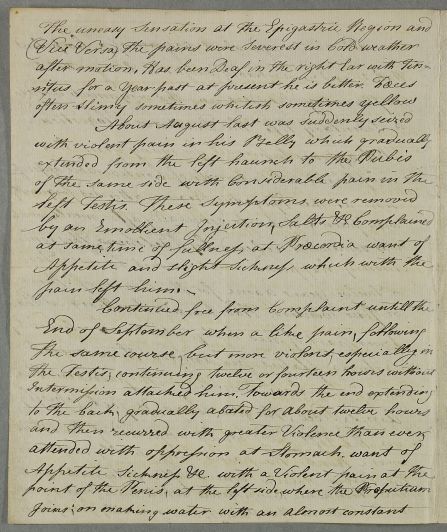 the uneasy Sensation at the Epigastric Region and
(Vice Versa) the pains were severest in Cold weather
after motion. Has been Deaf in the right Ear with Tin-
nitus for a Year past at present he is better. Fæces
often slimy sometimes whitish sometimes yellow
About August last was suddenly seized
with violent pain in his Belly which gradually
extended from the left haunch to the Pubes
of the same side with Considerable pain in the
left Testis. These Symptoms were removed
by an Emollient Injection, Salts &c Complained
at same time of fullness at Præcordia want of
Appetite and slight Sickness which with the
pain left him.
Continued free from Complaint untill the
End of September when a like pain, following
the same course, but more violent, especially in
the Testis, continuing twelve or fourteen hours without
Intermission attacked him, Towards the end extending
to the back, gradually abated for about twelve hours
and then recurred with greater Violence than ever
attended with oppression at Stomach, want of
Appetite Sickness &c. with a Violent pain at the
point of the Penis, at the left side where the Præputium
joins; on making water with an almost constant